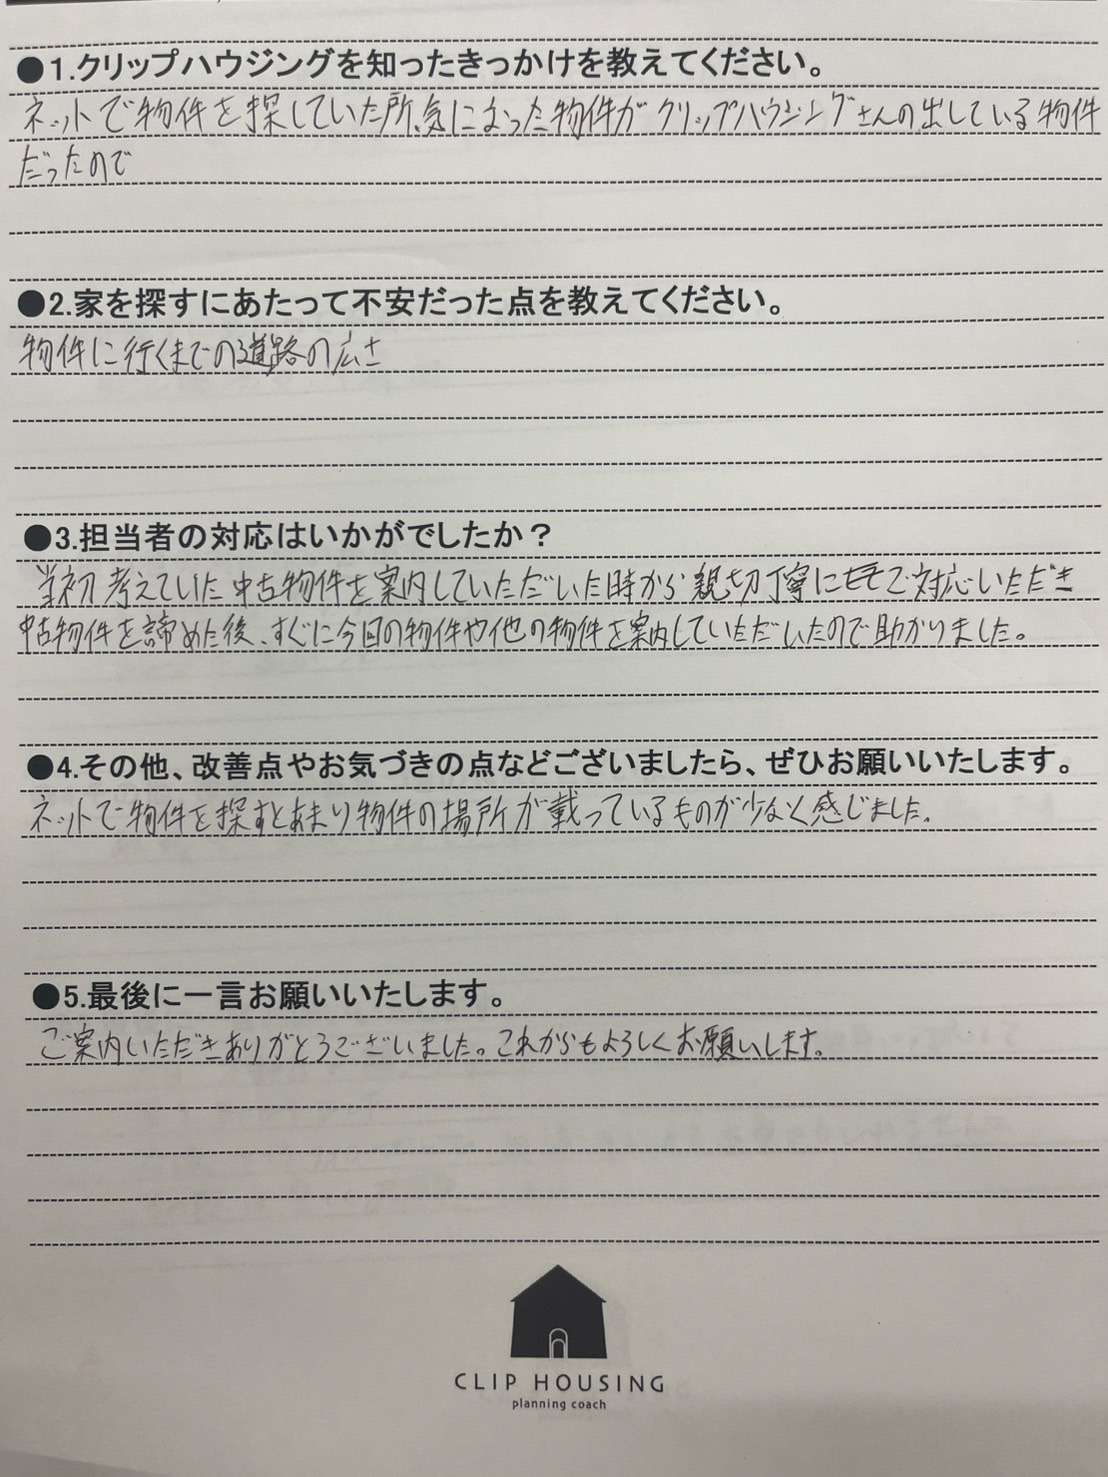 ●1.クリップハウジングを知ったきっかけを教えてください。
ネットで物件を探していた所、気になった物件がクリップハウジングさんの出している物件
だったので
●2.家を探すにあたって不安だった点を教えてください。
物件に行くまでの道路の広さ
●3.担当者の対応はいかがでしたか？
当初考えていた中古物件を案内していただいた時から親切丁寧に対応いただき
中古物件を諦めた後、すぐに今回の物件や他の物件を案内していただいたので助かりました。
●4.その他、改善点やお気づきの点などございましたら、ぜひお願いいたします。
ネットで物件を探すとあまり物件の場所が載っているものが少なく感じました。
●5.最後に一言お願いいたします。
ご案内いただきありがとうございました。これからもよろしくお願いします。
CLIP HOUSING
planning coach